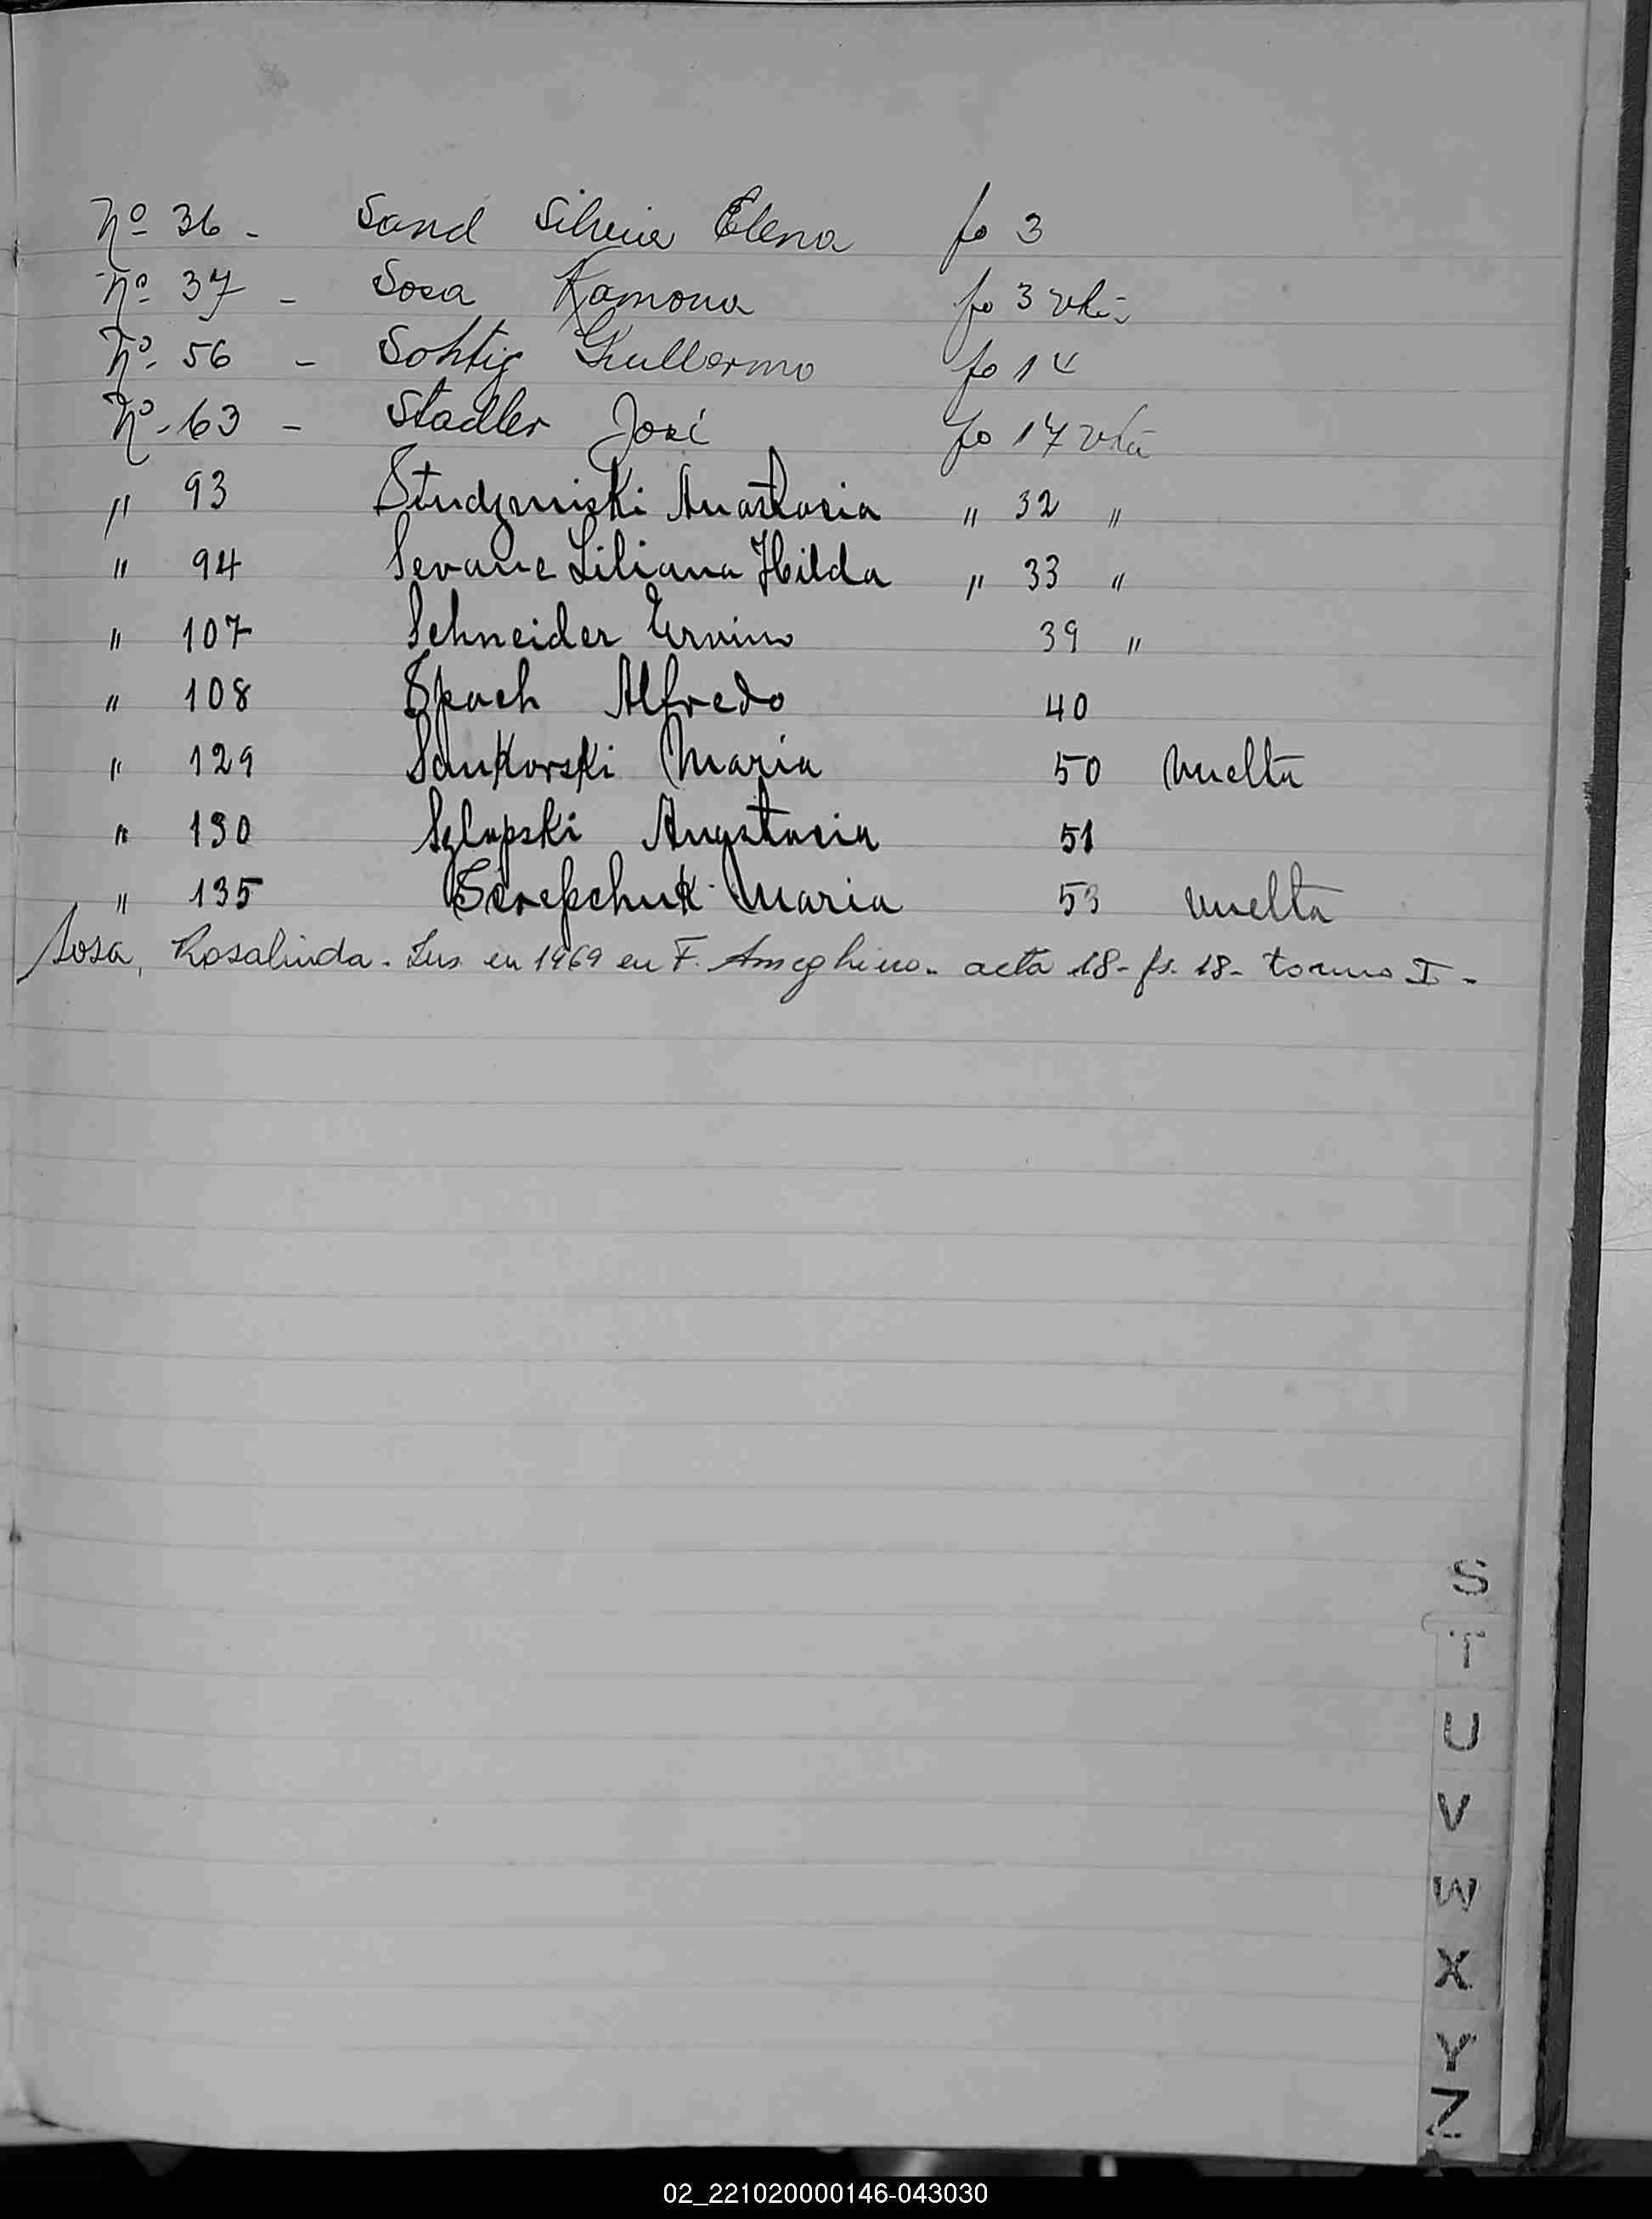 Nº 36 - Sand Silvia Elena fo 3
Nº 37 - Sosa Ramona fo 3 vta
Nº 56 - Sohtig Guillermo fo 14
Nº 63 - Stadler José fo 17 vta
" 93 Studzinski Anastasia " 32 "
" 94 Sevane Liliana Hilda " 33 "
" 107 Schneider Ervino 39 "
" 108 Spach Alfredo 40
" 129 Sankorski Maria 50 vuelta
" 130 Szlapski Anastasia 51
" 135 Maria 53 vuelta
Sosa, Rosalinda. Ins en 1969 en F. Ameghino. acta 18- fs. 18- tomo I -
S
T
U
V
W
X
Y
Z
02_221020000146-043030